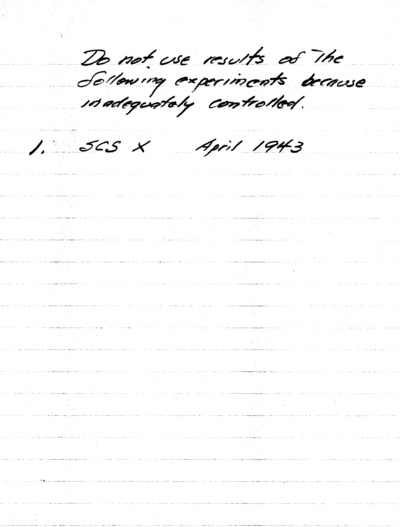 Do not use results of the
following experiments because
inadequately controlled.
1. SCS X April 1943